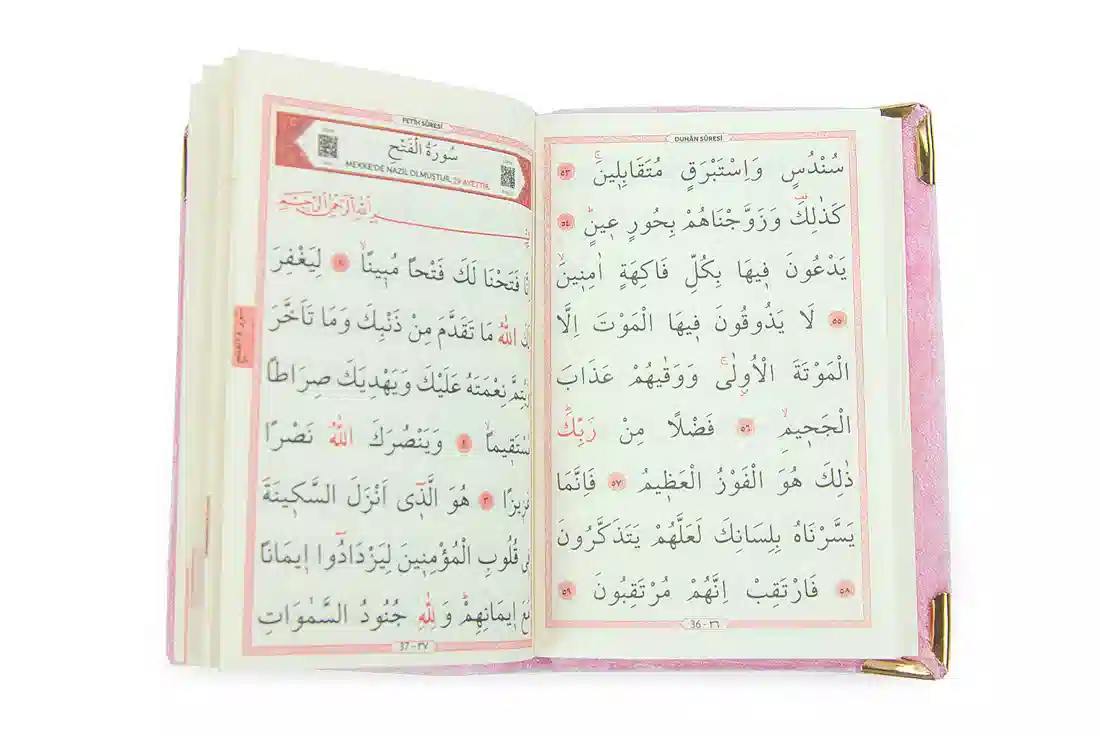 DUHÂN SÛRESİ
سُنْدُسٍ وَاِسْتَبْرَقٍ مُتَقَابِلٖينَۚ ٥٣
كَذٰلِكَ وَزَوَّجْنَاهُمْ بِحُورٍ عٖينٍۜ ٥٤
يَدْعُونَ فٖيهَا بِكُلِّ فَاكِهَةٍ اٰمِنٖينَۙ
٥٥ لَا يَذُوقُونَ فٖيهَا الْمَوْتَ اِلَّا
الْمَوْتَةَ الْاُو۫لٰىۚ وَوَقٰيهُمْ عَذَابَ
الْجَحٖيمِۙ ٥٦ فَضْلًا مِنْ رَبِّكَۜ
ذٰلِكَ هُوَ الْفَوْزُ الْعَظٖيمُ ٥٧ فَاِنَّمَا
يَسَّرْنَاهُ بِلِسَانِكَ لَعَلَّهُمْ يَتَذَكَّرُونَ
٥٨ فَارْتَقِبْ اِنَّهُمْ مُرْتَقِبُونَ ٥٩
36 - ٣٦
FETİH SÛRESİ
سُورَةُ الْفَتْحِ
MEKKE'DE NAZİL OLMUŞTUR, 29 AYETTİR.
بِسْمِ اللّٰهِ الرَّحْمٰنِ الرَّحٖيمِ
فَتَحْنَا لَكَ فَتْحًا مُبٖينًاۙ ١ لِيَغْفِرَ
اللّٰهُ مَا تَقَدَّمَ مِنْ ذَنْبِكَ وَمَا تَاَخَّرَ
نِعْمَتَهُ عَلَيْكَ وَيَهْدِيَكَ صِرَاطًا
مُسْتَقٖيمًاۙ ٢ وَيَنْصُرَكَ اللّٰهُ نَصْرًا
عَزٖيزًا ٣ هُوَ الَّذٖٓى اَنْزَلَ السَّكٖينَةَ
فٖى قُلُوبِ الْمُؤْمِنٖينَ لِيَزْدَادُٓوا اٖيمَانًا
مَعَ اٖيمَانِهِمْۜ وَلِلّٰهِ جُنُودُ السَّمٰوَاتِ
37 - ٣٧